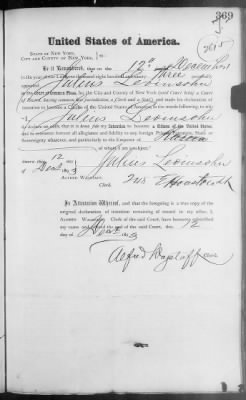 369
2015
United States of America.
STATE OF NEW YORK,
CITY AND COUNTY OF NEW YORK, ss:
Be it Remembered, that on the 12 day of December
in the year of our Lord one thousand eight hundred and ninety three personally
appeared Julius Levinsohn
in the Court of Common Pleas, for the City and County of New York (said Court being a Court
of Record, having common law jurisdiction, a Clerk and a Seal), and made his declaration of
intention to become a Citizen of the United States of America in the words following, to wit:
I, Julius Levinsohn
do declare on oath that it is bona fide my intention to become a Citizen of the United States
and to renounce forever all allegiance and fidelity to any foreign Prince, Potentate, State or
Sovereignty whatever, and particularly to the Emperor of Russia
of whom I am a subject.
Sworn this 12
day of Dec 1893 Julius Levinsohn
ALFRED WAGSTAFF, 248 E Houston St
Clerk.
In Attestation Whereof, and that the foregoing is a true copy of the
original declaration of intention remaining of record in my office, I,
ALFRED WAGSTAFF, Clerk of the said Court, have hereunto subscribed
my name and affixed the seal of the said Court, this 12
day of Dec 1893
Alfred Wagstaff Clerk